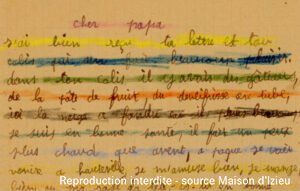 cher papa
j'ai bien reçu ta lettre et ton
colis qui m'a fait beaucoup plaisir.
dans ton colis il y avait des gâteaux,
de la pâte de fruit du dentifrice en tube,
ici la neige a fondre
je suis en bonne santé, il fait un peux
plus chaud que avent, a paque je vais
venir a hauteville, je m'amuse bien, je mange
bien
Reproduction interdite - source Maison d'Izieu